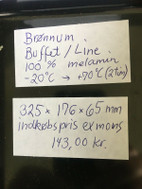 Brønnum.
Buffet / Line.
100 % melamin
-20°C → +70°C (2 tim)
325 x 176 x 65 mm
Indkøbspris ex moms
143,00 kr.